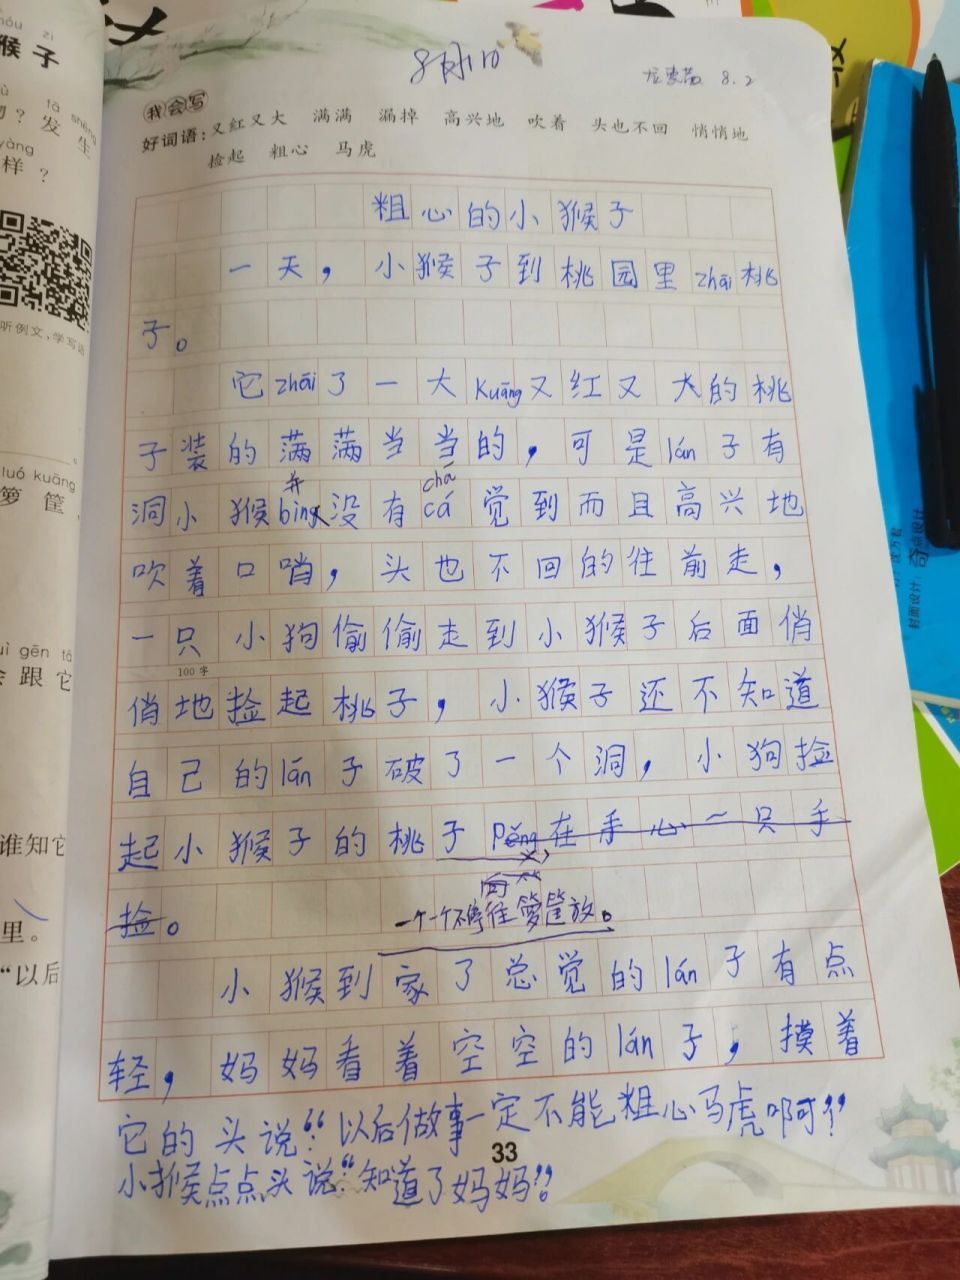 hóu zi
猴子
fā shēng
？发生
yàng
样？
听例文，学写话
luó kuāng
箩筐，
gēn tā
跟它
谁知它
里。
“以后
8.2
我会写
好词语：又红又大 满满 漏掉 高兴地 吹着 头也不回 悄悄地
捡起 粗心 马虎
粗心的小猴子
一天，小猴子到桃园里zhāi桃
子。
它zhāi了一大Kuāng又红又大的桃
子装的满满当当的，可是lán子有
并 chá
洞小猴bìng没有cá觉到而且高兴地
吹着口哨，头也不回的往前走，
一只小狗偷偷走到小猴子后面俏
100字
俏地捡起桃子，小猴子还不知道
自己的lán子破了一个洞，小狗捡
起小猴子的桃子Pěng在手心一只手
捡。一个一个不停往箩筐放。
小猴到家了总觉的lán子有点
轻，妈妈看着空空的lán子，摸着
它的头说“：以后做事一定不能粗心马虎啊？”
33
小猴点点头说：“知道了妈妈”！
封面设计：奇点设计